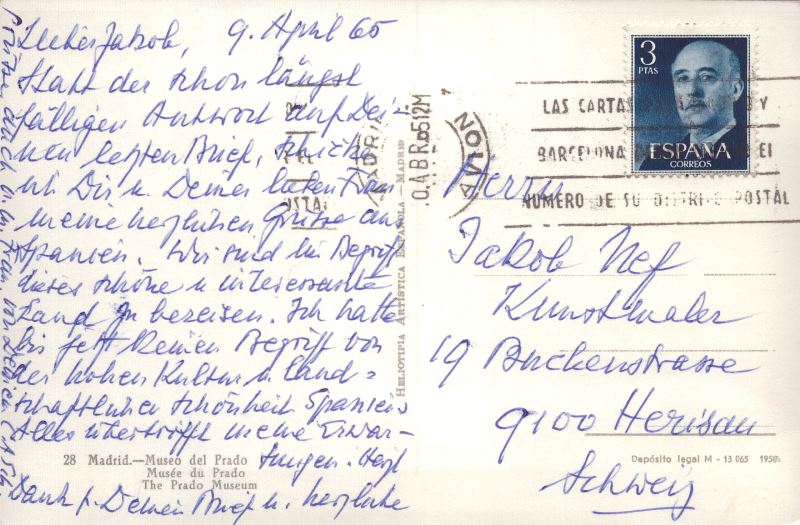 Lieber Jakob, 9. April 65
Statt der schon längst
fälligen Antwort auf Dei-
nen letzten Brief, schicke
ich Dir u. Deiner lieben Frau
meine herzlichen Grüsse aus
Spanien. Wir sind im Begriff
dieses schöne u. interessante
Land zu bereisen. Ich hatte
bis jetzt keinen Begriff von
der hohen Kultur u. Land=
schaftlicher Schönheit Spaniens
Alles übertrifft meine Erwar-
tungen. Herzl
Dank f. Deinen Brief u. herzliche
auch
28 Madrid.—Museo del Prado
Musée du Prado
The Prado Museum
HELIOTIPIA ARTISTICA ESPAÑOLA — MADRID
MADRID
10 ABR 65 12M
AVION
3
PTAS
ESPAÑA
CORREOS
LAS CARTAS PARA Y
BARCELONA EL
NUMERO DE SU DISTRITO POSTAL
Herrn
Jakob Nef
Kunstmaler
19 Buchenstrasse
9100 Herisau
Schweiz
Depósito legal M - 13 065 1958